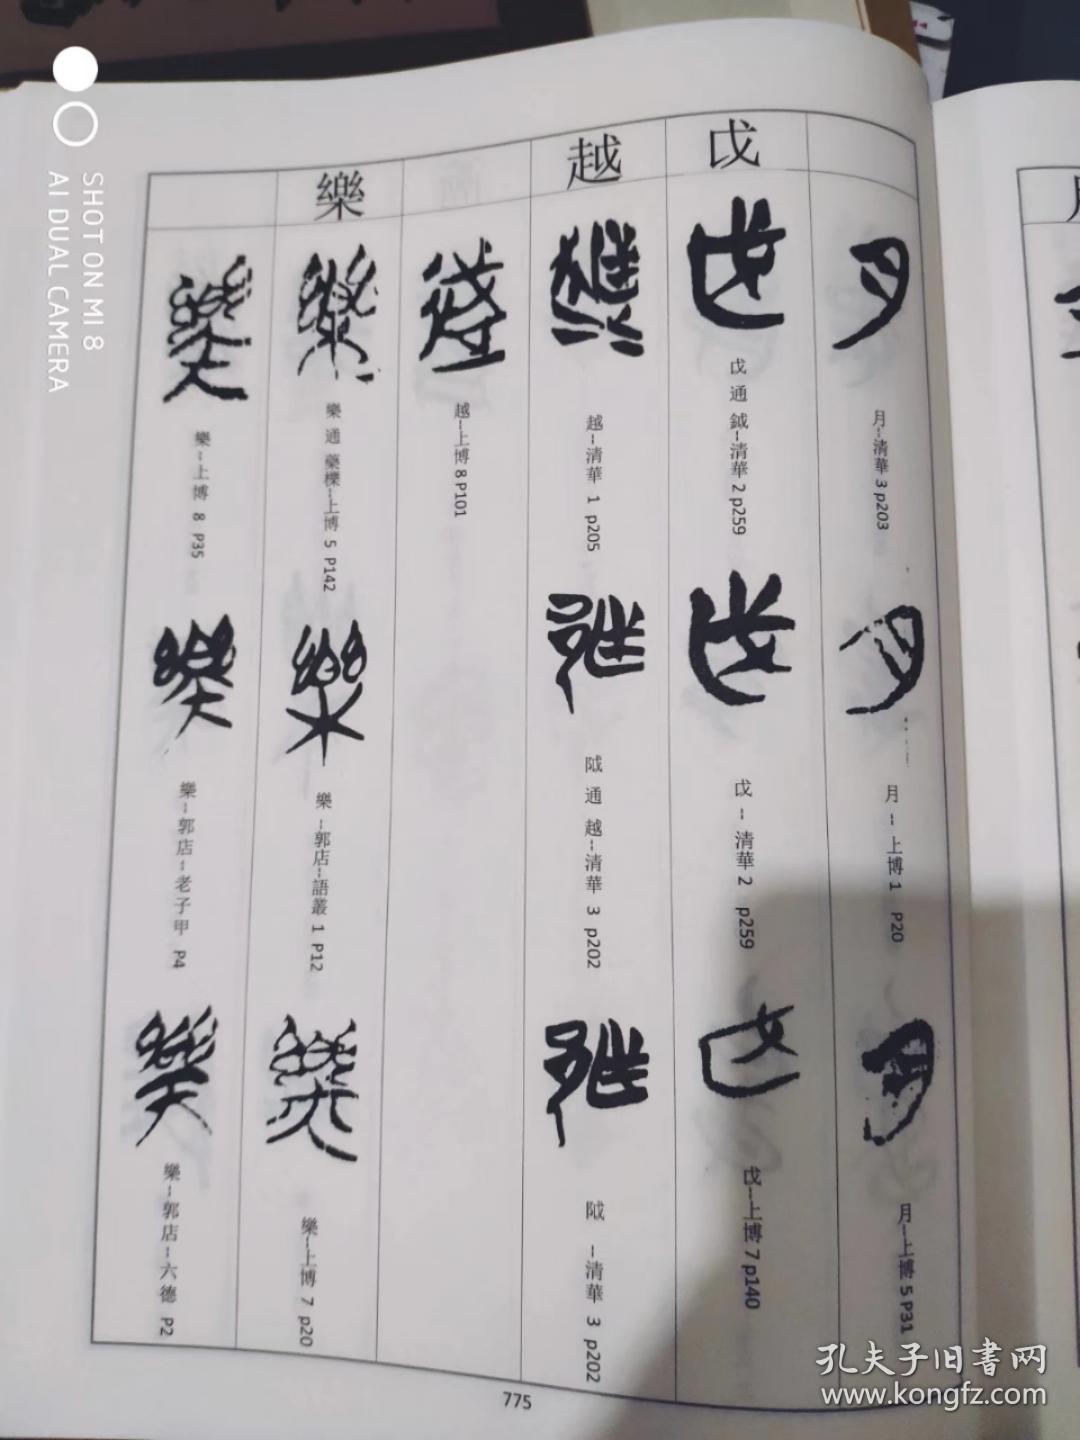 戉
越
樂
月--清華 3 p203
月 -- 上博 1 P20
月--上博 5 P31
戉 通 鉞--清華 2 p259
戉 -- 清華 2 p259
戉--上博 7 p140
越--清華 1 p205
𨸘 通 越--清華 3 p202
𨸘 --清華 3 p202
越--上博 8 P101
樂 通 藥櫟--上博 5 P142
樂 --郭店--語叢 1 P12
樂--上博 7 p20
樂--上博 8 P35
樂--郭店--老子甲 P4
樂--郭店--六德 P2
775
SHOT ON MI 8
AI DUAL CAMERA
孔夫子旧書网
www.kongfz.com